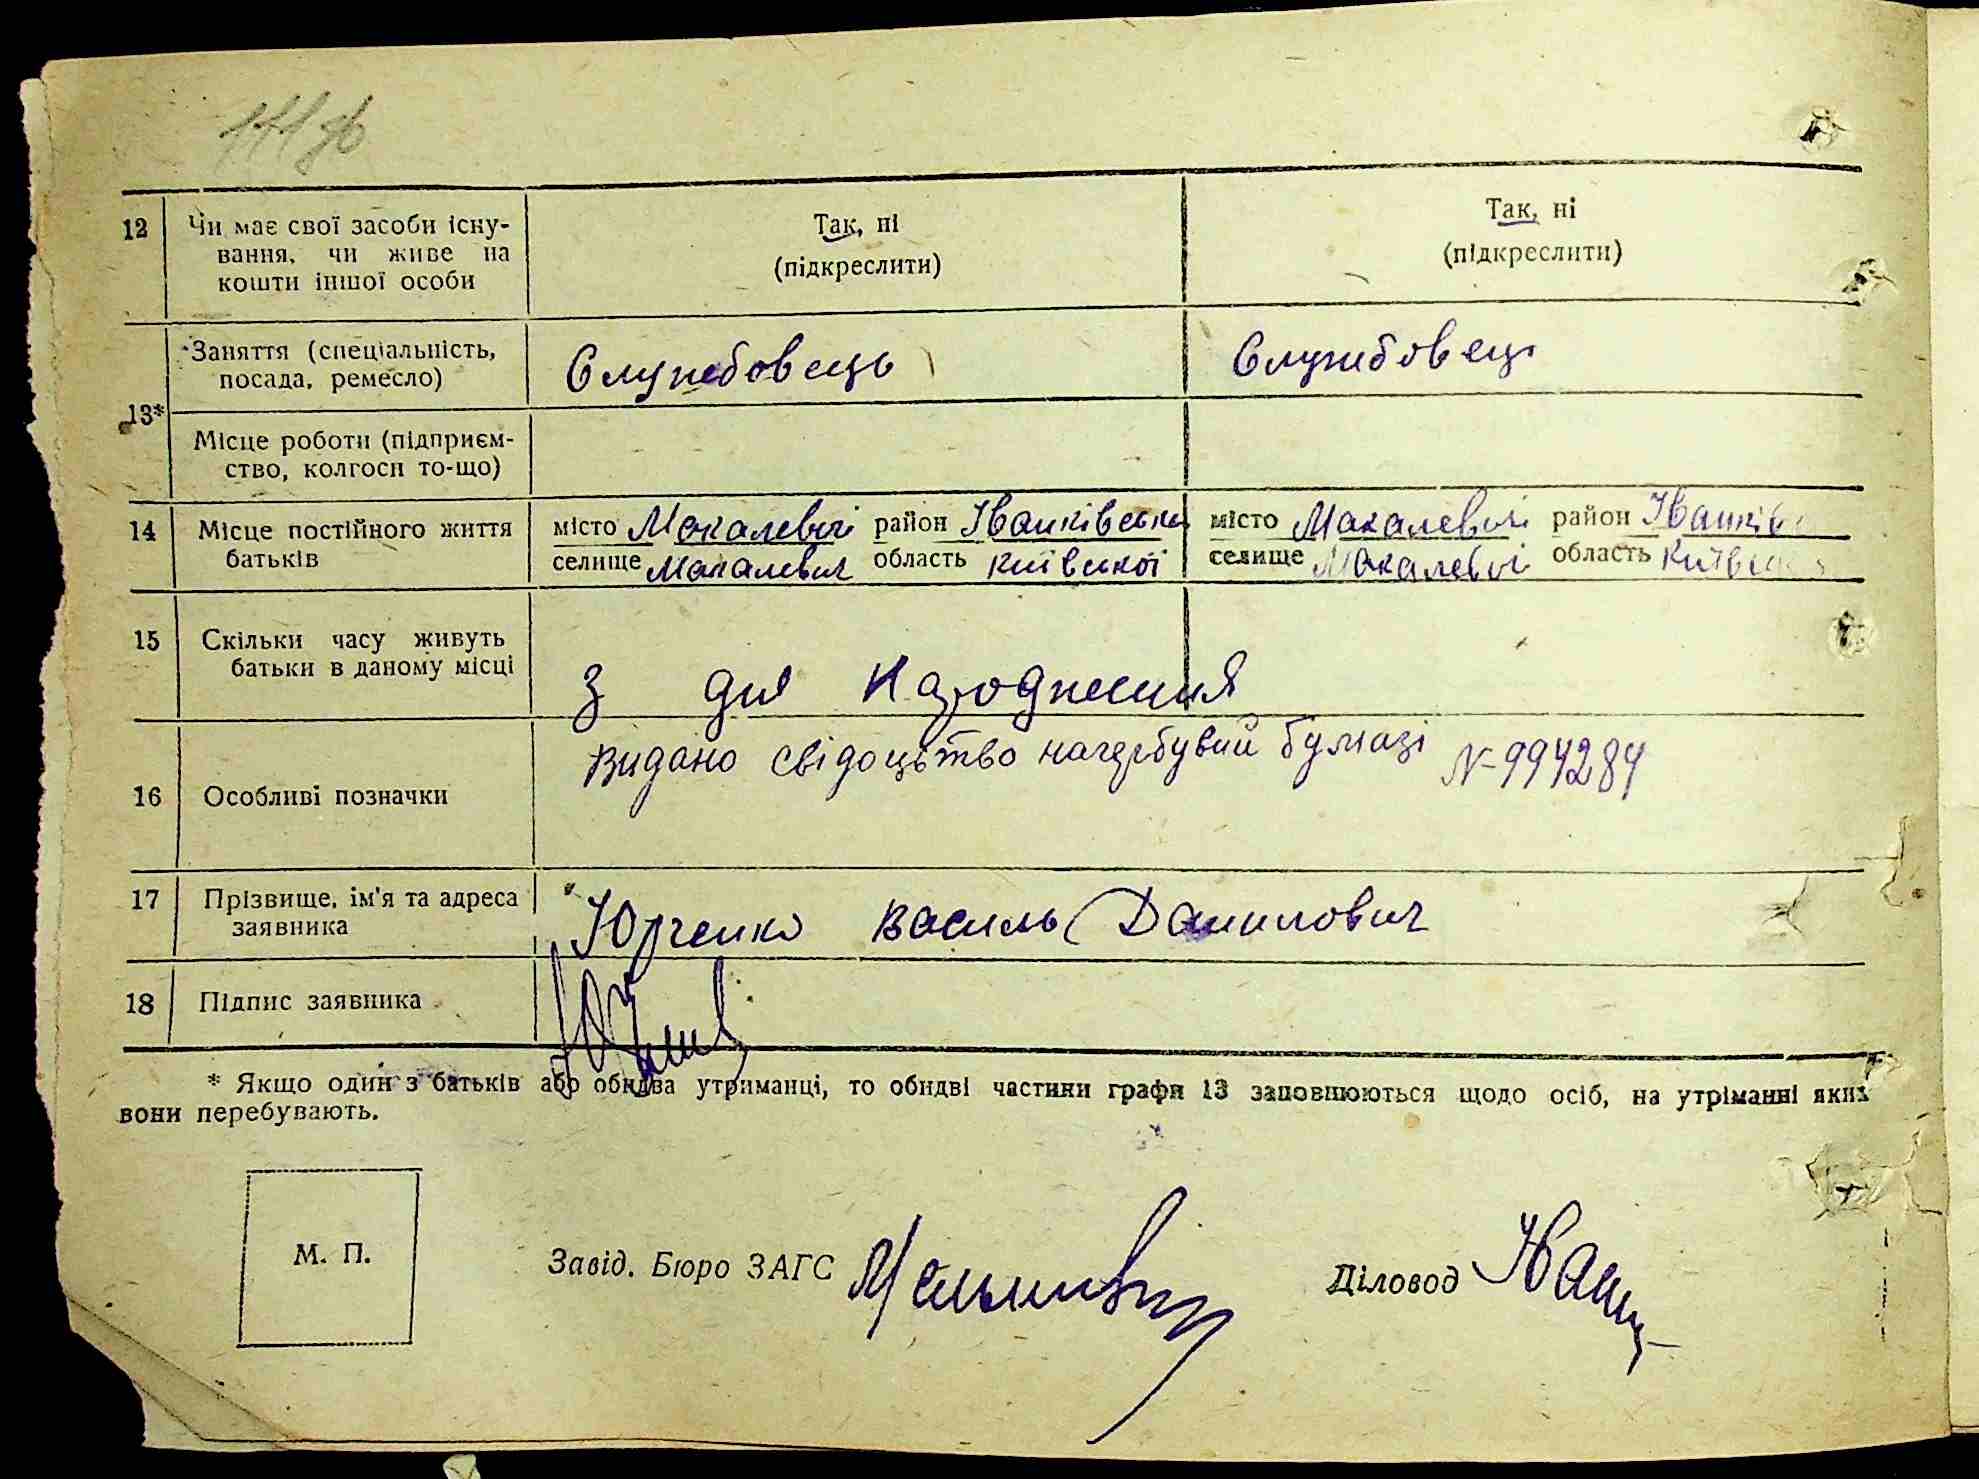 12 Чи має свої засоби існу-
вання, чи живе на
кошти іншої особи
Так, ні
(підкреслити)
Так, ні
(підкреслити)
13*
Заняття (спеціальність,
посада, ремесло)
Службовець
Службовець
Місце роботи (підприєм-
ство, колгосп то-що)
14 Місце постійного життя
батьків
місто Макалевичі район Іванківський
селище Макалевич область Київської
місто Макалевичі район Іванків
селище Макалевичі область Київської
15 Скільки часу живуть
батьки в даному місці
З дня народження
16 Особливі позначки
Видано свідоцьтво на гербувий бумазі N-994284
17 Прізвище, ім'я та адреса
заявника
Юрченко Василь Данилович
18 Підпис заявника
* Якщо один з батьків або обидва утриманці, то обидві частини графи 13 заповнюються щодо осіб, на утріманні яких
вони перебувають.
М. П.
Завід. Бюро ЗАГС
Діловод